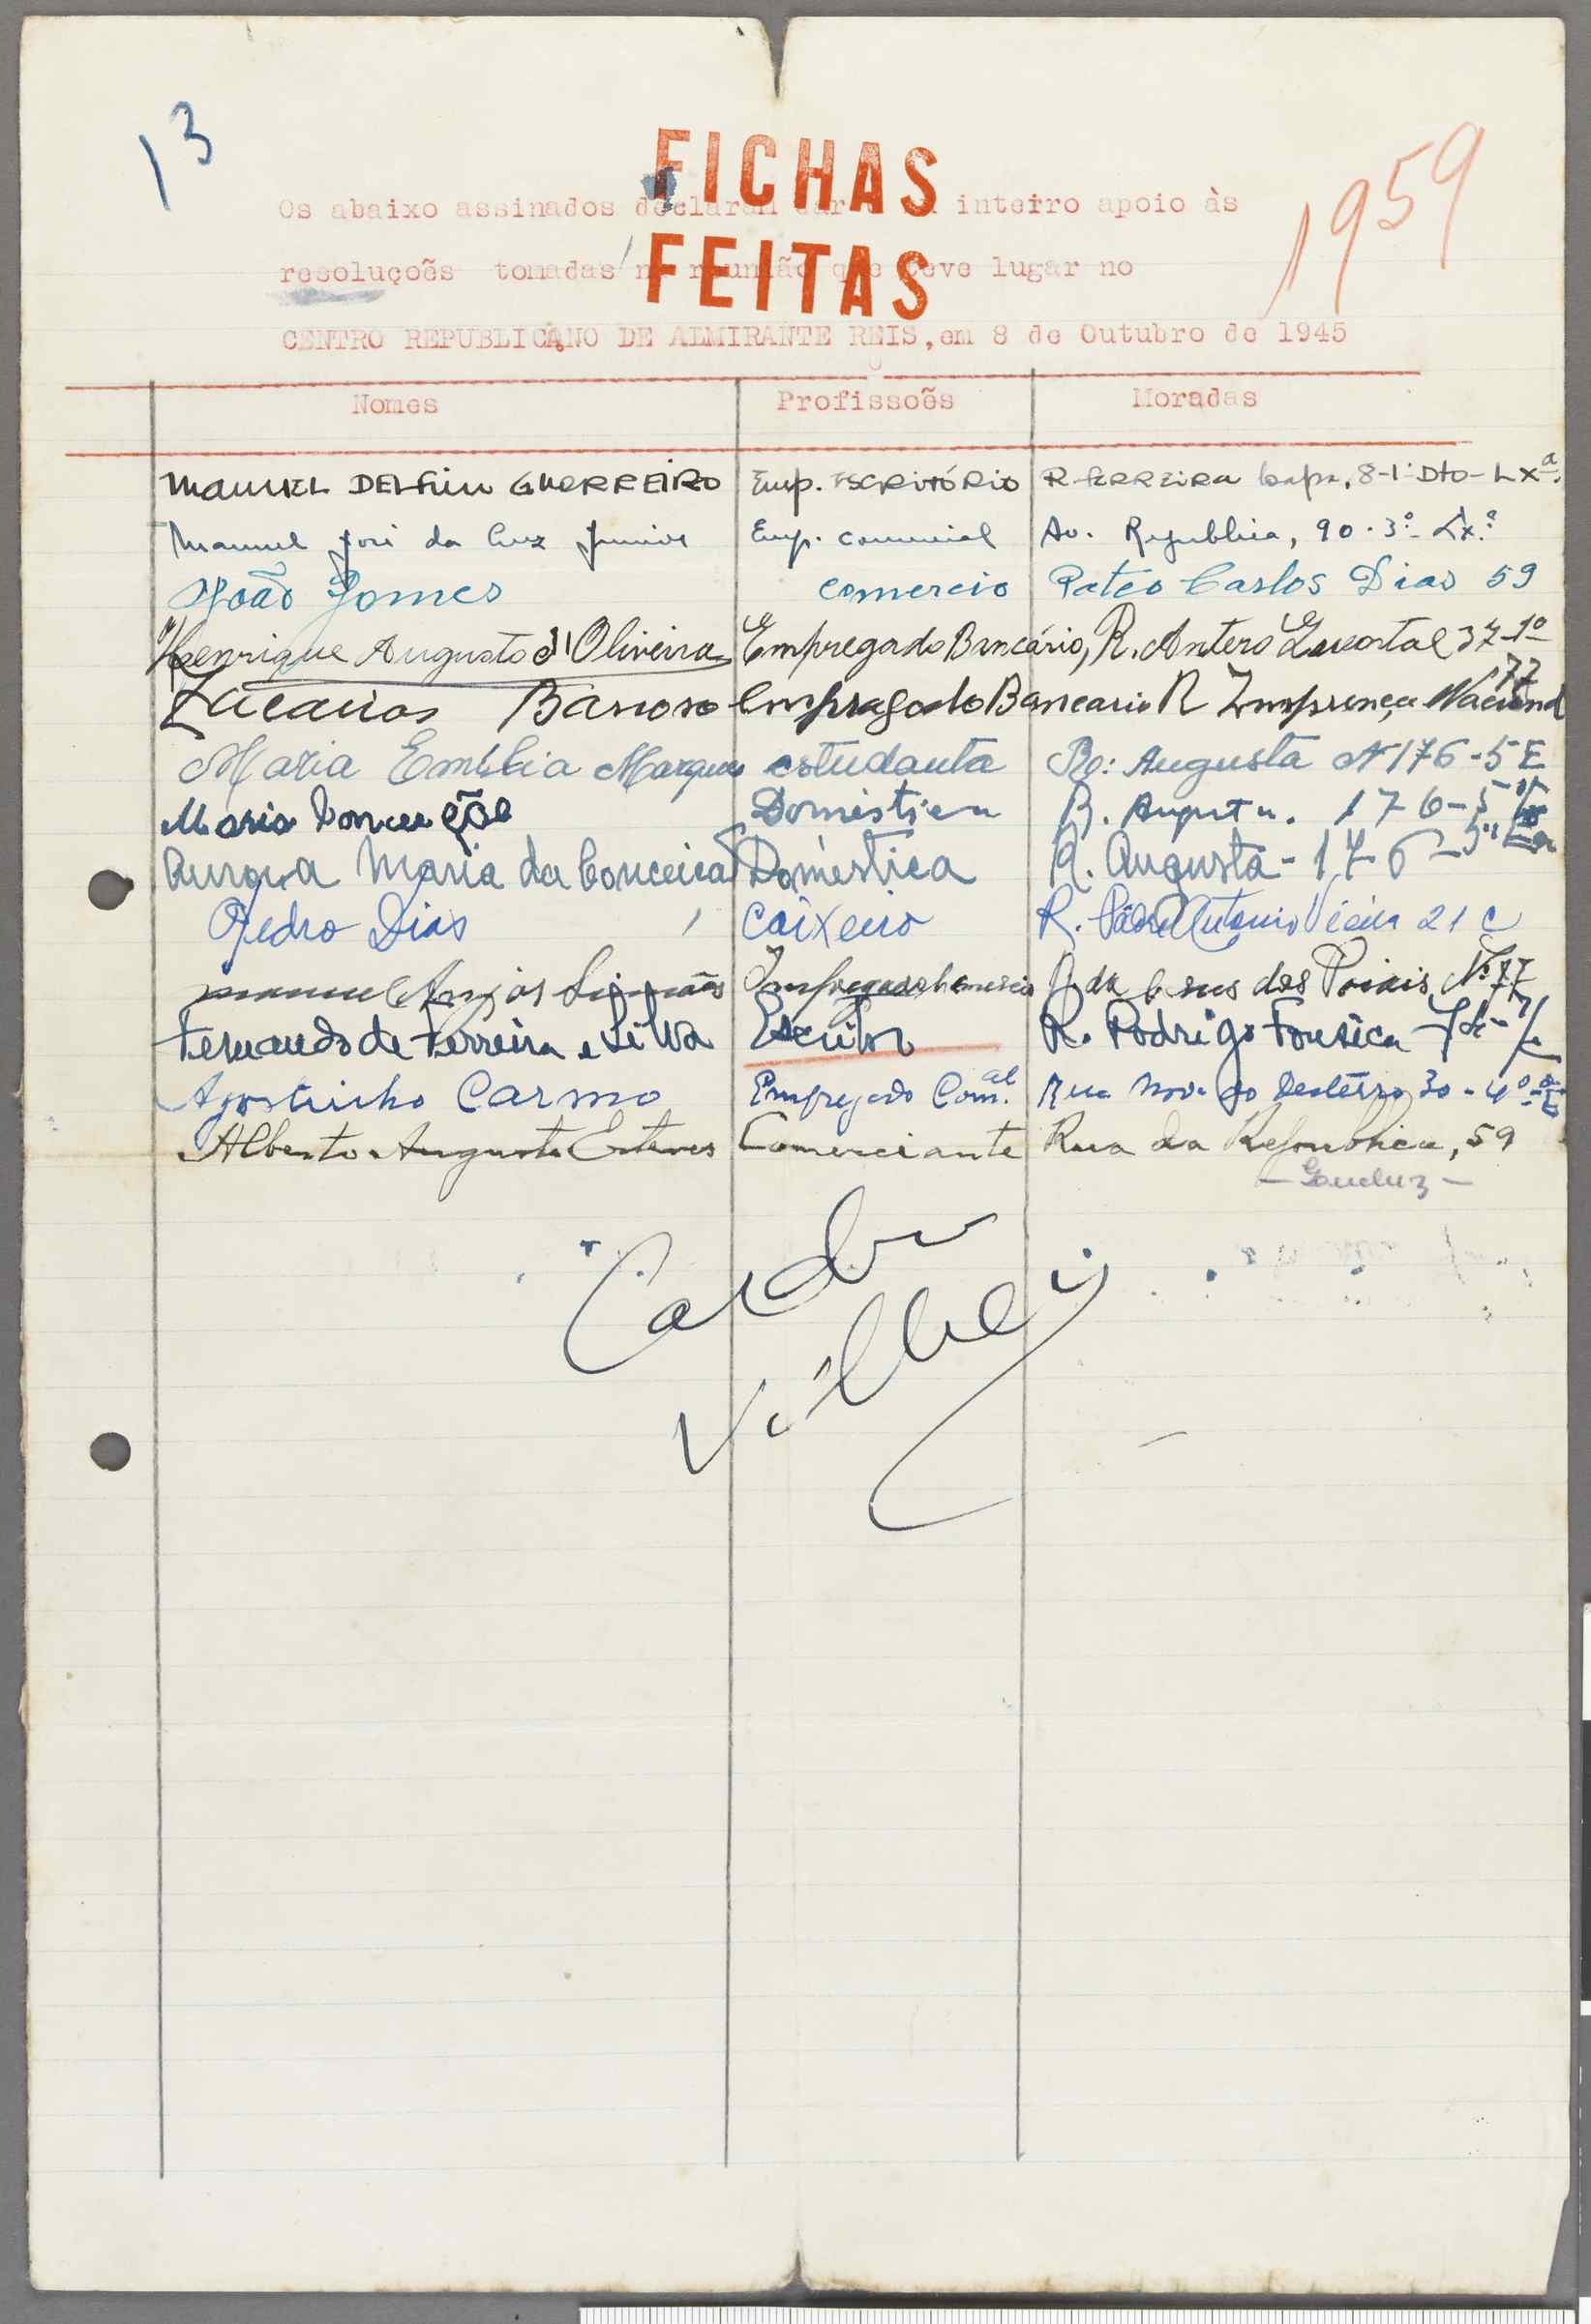 13
FICHAS
FEITAS
1959
Os abaixo assinados declaram dar inteiro apoio às
resoluçoẽs tomadas na reunião que teve lugar no
CENTRO REPUBLICANO DE ALMIRANTE REIS, em 8 de Outubro de 1945
Nomes Profissoẽs Moradas
MANUEL DELFIM GUERREIRO Emp. ESCRITÓRIO R. FERREIRA Lapa, 8-1º Dto - Lxª.
Manuel José da Luz Junior Emp. comercial Av. Republica, 90-3º Lx.ª
João Gomes comercio Pateo Carlos Dias 59
Henrique Augusto d'Oliveira Empregado Bancário, R. Antero Quental 37-1º
Zacarias Barroso Empregado Bancario R Imprensa Nacional 77
Maria Emilia Marques estudanta R: Augusta Nº 176-5 E
Maria Conceição Doméstica R. Augusta. 176-5º
Aurora Maria da Conceicao Doméstica R. Augusta - 176-5º
Pedro Dias Caixeiro R. Padre Antonio Vieira 21 C
Manuel Anjos Simões dos Poiais Nº 77
Fernando de Ferreira e Silva Escritor R. Rodrigo Fonseca
Agostinho Carmo Empregado Com.al Rua Nova do Desterro 30-4º-E
Alberto Augusto Esteves Comerciante Rua da Republica, 59